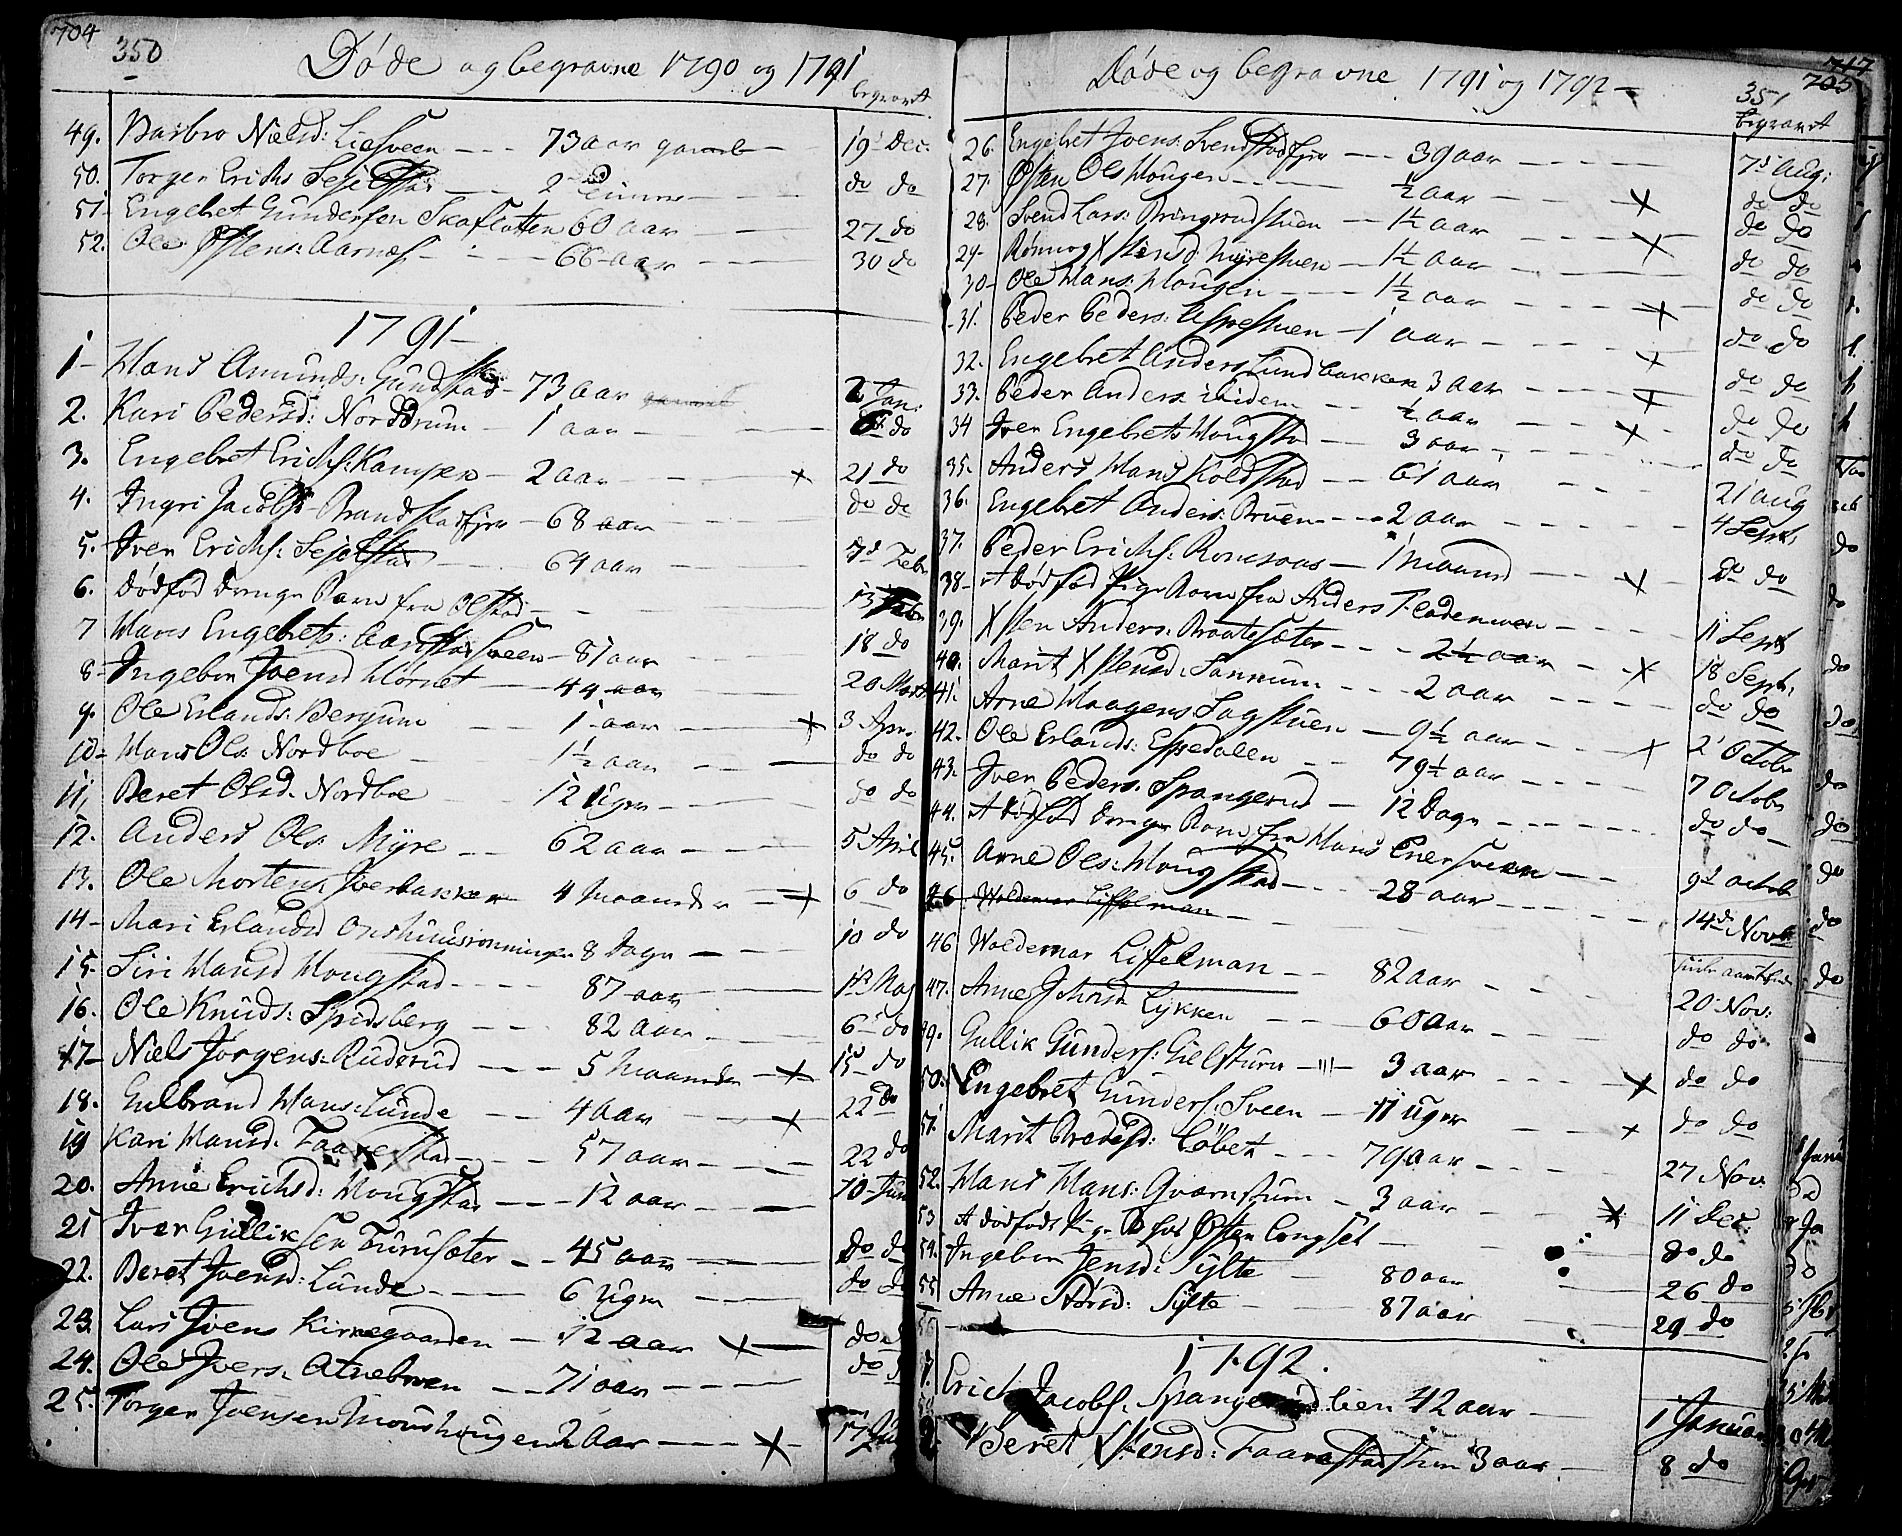 704
350
Døde og begravne 1790 og 1791
begravet
49. Barbro Nielsd: Liesveen --- 73 aar gamel - 19 Dec:
50. Torger Erichs Sejelstad --- 2 Timer - do do
51. Engebret Gundersen Skaflotten 60 aar --- 27 do
52. Ole Østens: Aarnæs --- 66 aar --- 30 do
1791
1 - Hans Amunds: Gundstad - 73 aar 2 Jan:
2. Kari Pedersd: Norddrum - 1 aar --- do
3. Engebret Erichs: Kampen - 2 aar --- x 21 do
4. Ingri Jacobsd Brandstadejer - 68 aar --- do do
5. Iver Erichs: Sejelstad --- 64 aar --- 7d Febr
6. Dødfød Drenge Barn fra Olstad --- 13 Febr
7 Hans Engebrets: Aarstadsveen - 81 aar --- 18 do
8 - Ingebor Joensd Hornet --- 44 aar --- 20 Marti
9. Ole Erlands: Bergum --- 1 aar --- x 3 Apr.
10 - Hans Ols: Nordboe --- 1½ aar --- do do
11, Beret Olsd. Nordboe 12 Uger --- do do
12. Anders Ols: Myre --- 62 aar --- 5 April
13. Ole Mortens: Iverbakken 4 Maaneder --- x 6 do
14 - Mari Erlandsd 8 Dage --- 10 do
15. Siri Hansd Hougstad --- 87 aar --- 1st Maj
16. Ole Knuds: Spidsberg --- 82 aar --- 6 do
17 - Niels Jørgens: Ruderud --- 5 Maaneder - x 15 do
18. Gulbrand Hans: Lunde --- 4 aar --- x 22 do
19 Kari Hansd. Faarestad --- 57 aar --- 22 do
20. Anne Erichsd: Hougstad --- 12 aar --- 10 Jun
21 Iver Gulliksen Furusæter --- 45 aar --- do do
22. Beret Joensd: Lunde --- 6 Uger --- do do
23. Lars Joens Kirkegaarden - 12 aar x - do
24. Ole Ivers: Atnebroen --- 71 aar --- do
25. Torger Joensen 2 aar --- x - 17
Døde og begravne 1791 og 1792 -
717
705
351
begravet
26 Engebret Joens: Svendstadejer --- 39 aar --- 7d Aug:
27. Østen Ols Hougen --- ½ aar --- x do do
28. Svend Lars: Bringerudstuen --- 1½ aar --- x do do
29 - Rønnog Xstensd: Myrestuen - 1½ aar --- do do
30 - Ole Hans: Hougen --- 1½ aar --- x do do
31. Peder Peders: Espestuen - 1 aar --- x do do
32. Engebret Anders Lundbakken 3 aar --- x do do
33. Peder Anders: ibidem -- ½ aar --- x do do
34 Iver Engebrets Hougstad --- 3 aar --- do do
35. Anders Hans Koldstad --- 61 aar --- 21 Aug
36. Engebret Anders: Bruen --- 2 aar --- 4 Sept.
37. Peder Erichs: Romsaas --- 1 Maaned --- x do do
38 - et Dødfød Pige Barn fra Anders Flademoen --- 11 Sept
39. Xsten Anders: Braatesæter --- 2½ aar --- x 18 Sept.
40. Marit Xstensd: Sannum --- 2 aar --- do do
41. Arne Haagens Sagstuen --- 9½ aar --- x 2' Octobr
42. Ole Erlands: Espedalen --- 79½ aar --- 7 Octob
43. Iver Peders. Spangerud - 12 Dage --- do do
44. et dødfød Drenge Barn fra Hans Enersveen --- 9d Octob
45. Arne Ols: Hougstad --- 28 aar --- 14de Novb
46. Woldemar Liffelman
46 Woldemar Liffelman --- 82 aar ---
47. Anne Lykken --- 60 aar --- 20 Nov:
49. Gullik Gunders: Gielstuen -- 3 aar --- x do do
50. Engebret Gunders: Sveen - 11 Uger --- x do do
51. Marit Bradesd: Løbet --- 79 aar --- do do
27 Nov.
52. Hans Hans: Qværnstuen - 3 aar --- x 11 Dec:
53 et dødfødt Pige B hos Østen Longset - do do
54. Ingebor Jensd: Sylte --- 80 aar --- 26 do
55 Anne Sylte --- 87 aar --- 29 do
1792.
1. Erich Jacobs. Spangerudlien 42 aar --- 1 Januar
2. Beret Xstensd: Faarestadstuen 3 aar. --- 8 do